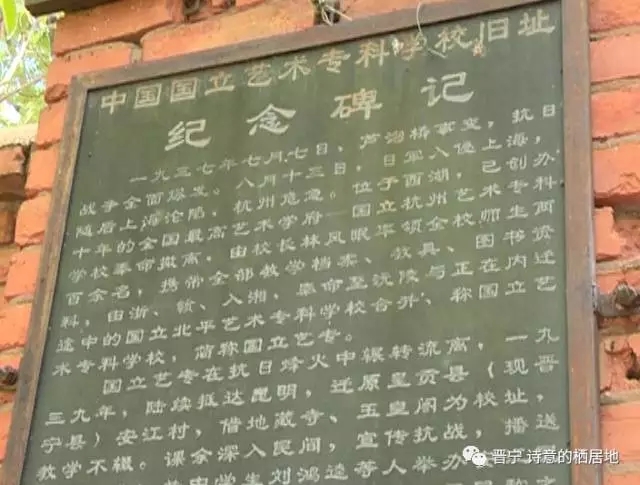 中国国立艺术专科学校旧址
纪念碑记
一九三七年七月七日、芦沟桥事变，抗日
战争全面爆发。八月十三日，日军入侵上海，
随后上海沦陷，杭州危急。位于西湖，已创办
十年的全国最高艺术学府—国立杭州艺术专科
学校奉命撤离，由校长林风眠率领全校师生两
百余名，携带全部教学档案、教具、图书资
料，由浙、赣、入湘，奉命至沅陵与正在内迁
途中的国立北平艺术专科学校合并、称国立艺
术专科学校，简称国立艺专。
国立艺专在抗日烽火中辗转流离，一九
三九年，陆续抵达昆明，迁原呈贡县（现晋
宁县）安江村，借地藏寺、玉皇阁为校址，
教学不辍。课余深入民间，宣传抗战，播送
学生刘鸿逵等人举办
晋宁 诗意的栖居地